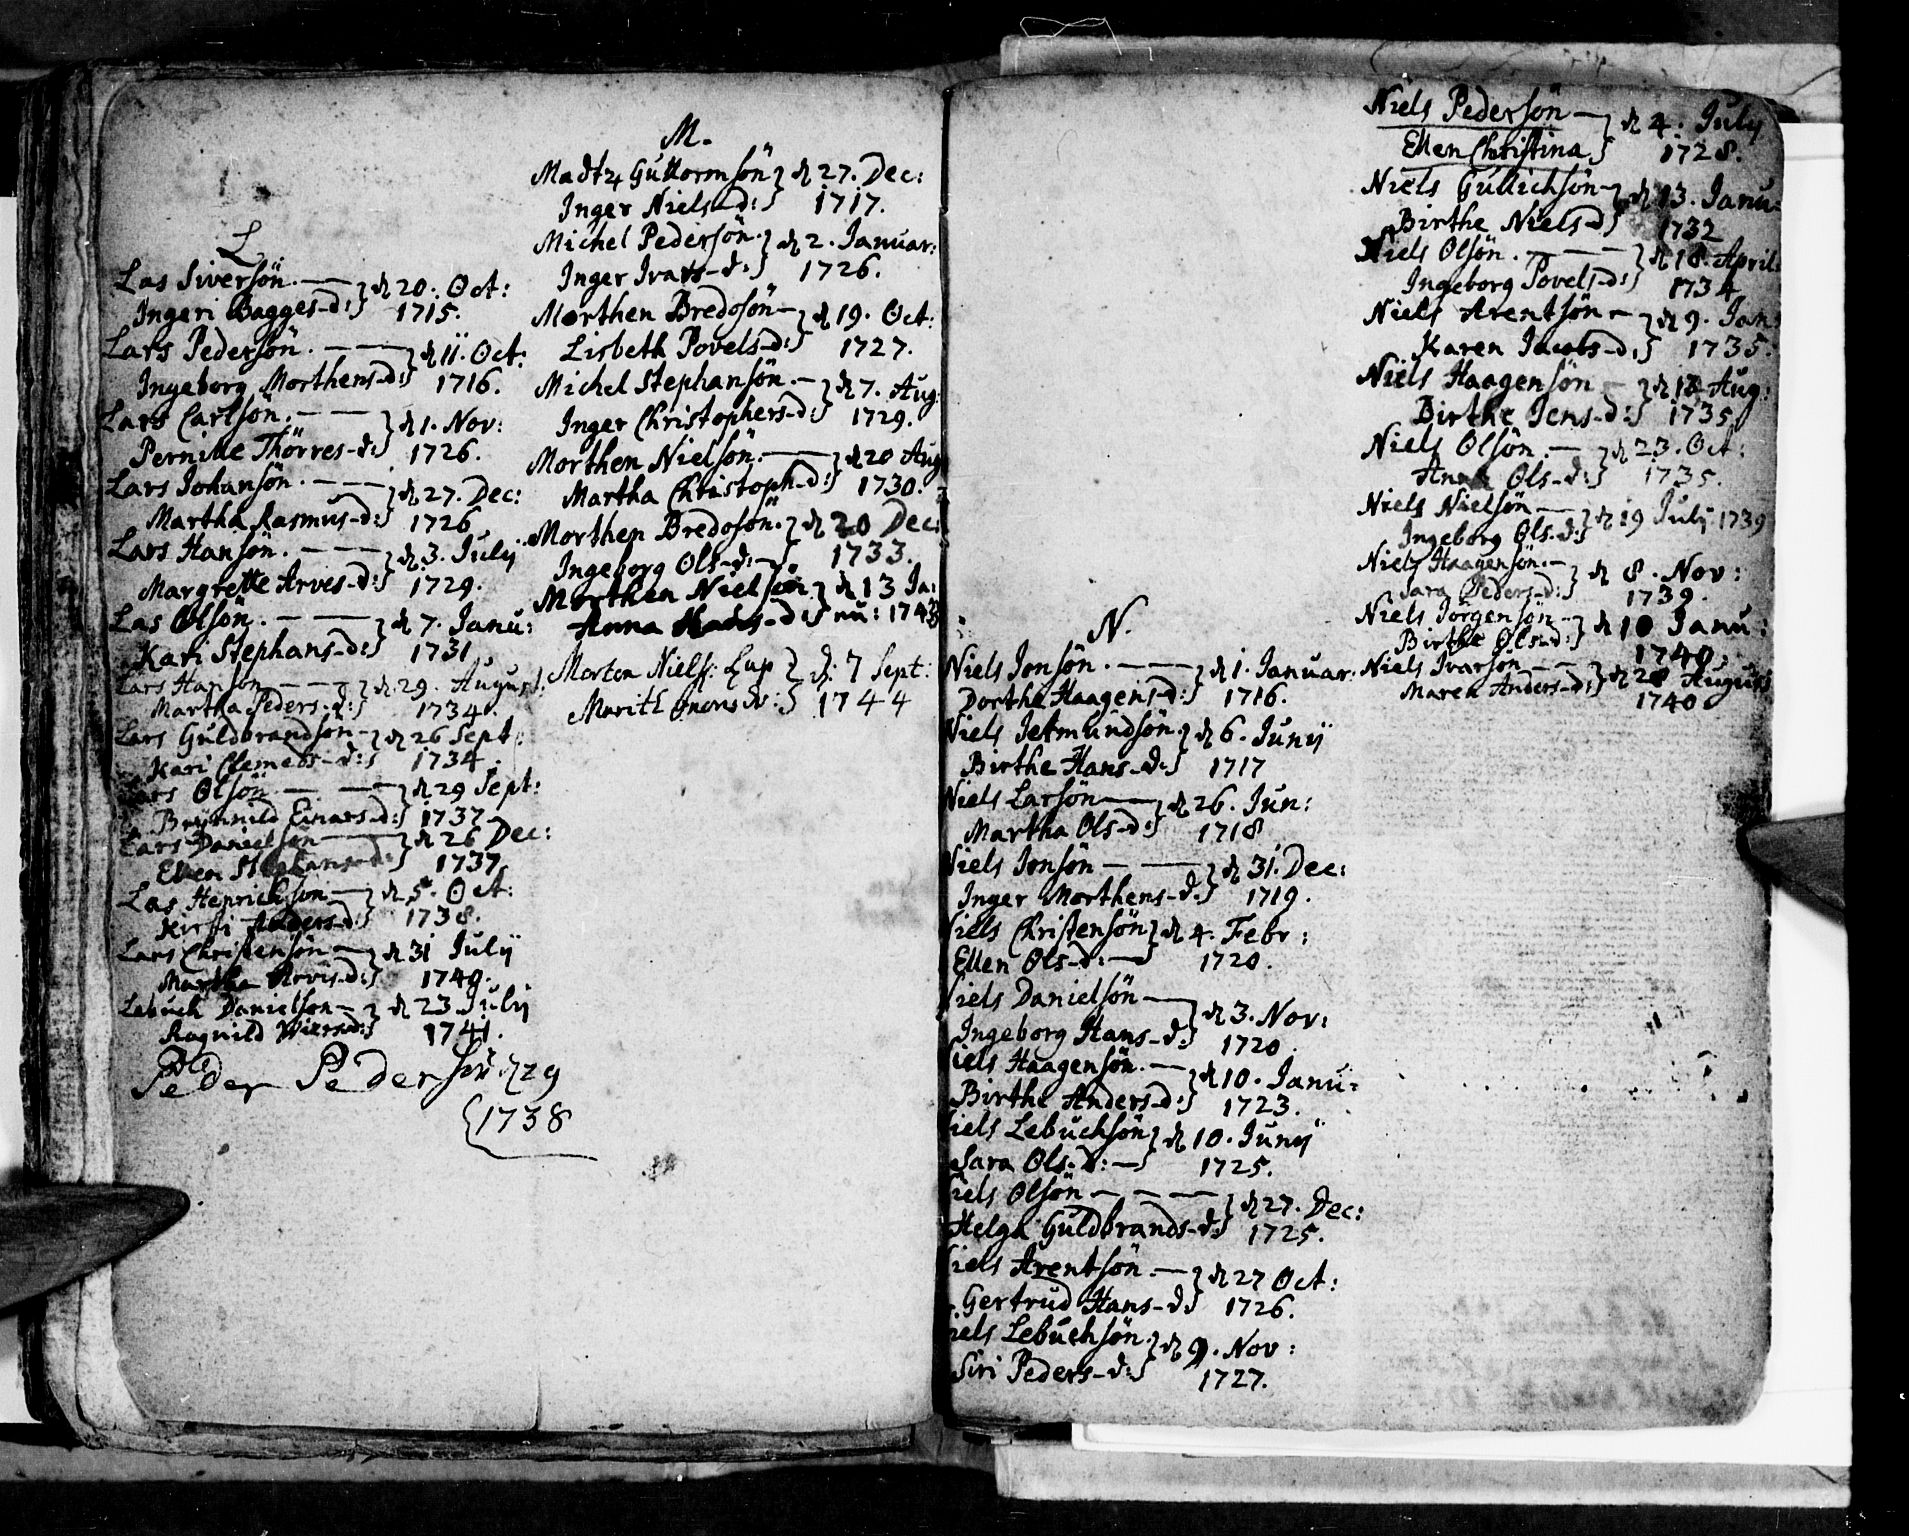 L.
Las Siversön. — — } d 20. Oct:
Ingeri Bagges-d:} 1715.
Lars Pedersön. — — } d 11. Oct:
Ingeborg Morthens-d:} 1716.
Lars Carlsön. — — } d 1. Nov:
Pernille Thörres-d:} 1726.
Lars Johansön. — — } d 27. Dec:
Martha Rasmus-d:} 1726
Lars Hansön. — — } d 3. Julÿ
Margrette Arves-d:} 1729.
Las Olsön. — — } d 7. Janu:
Kari Stephans-d:} 1731
Lars Hansön — — } d 29. August:
Martha Peders-d:} 1734.
Lars Guldbrandsön — } d 26 Sept:
Kari Clemets-d:} 1734.
Lars Olsön — — } d 29 Sept:
Brynnild Einars-d:} 1737
Lars Danielsön — } d 26 Dec:
Ellen Stephans-d:} 1737
Las Henrichson — } d 5. Oct:
Kirsti Anders-d:} 1738.
Lars Christensön — } d 31 Julÿ
Martha Arvis-d:} 1740.
Lebuch Danielson — } d 23 Julÿ
Ragnild Wiersd:} 1741.
Peder Peder sön d 29
{1738
M.
Madtz Guttormsön } d 27. Dec:
Inger Niels-d:} 1717.
Michel Pedersön. } d 2. Januar:
Inger Ivars-d:} 1726.
Morthen Bredosön — } d 19. Oct:
Lisbeth Povels-d:} 1727.
Michel Stephansön. — } d 7. Aug:
Inger Christophers-d:} 1729.
Morthen Nielsön. — } d 20 Aug
Martha Christoph-d:} 1730.
Morthen Bredosön. } d 20 Dec:
Ingeborg Ols-d: — } 1733.
Morthen Nielsön } d 13 Ja:
Anna Hans-d:} nu: 1743
Morten Niels: Lup } d: 7 Sept:
Marith 1744
N.
Niels Jonsön. — — } d 1. Januar:
Dorthe Haagens-d:} 1716.
Niels Jetmundsön. } d 6. Junÿ
Birthe Hans-d:} 1717
Niels Larsön — } d 26. Jun:
Martha Ols-d:} 1718
Niels Jonsön — — } d 31. Dec:
Inger Morthens-d:} 1719.
Niels Christensön } d 4. Febr:
Ellen Ols-d: — } 1720.
Niels Danielsön — } d 3. Nov:
Ingeborg Hans-d:} 1720
Niels Haagensön. — } d 10. Janu:
Birthe Anders-d:} 1723.
Niels Lebuchsön } d 10. Junÿ
Sara Ols-d: — } 1725.
Niels Olsön — — — } d 27. Dec:
Helga Guldbrands-d:} 1725.
Niels Arentsön. — } d 27 Oct:
Gertrud Hans-d:} 1726.
Niels Lebuchsön. } d 9. Nov:
Siri Peders-d:} 1727.
Niels Pedersön — } d 4. Julÿ
Ellen Christina } 1728.
Niels Gullichsön } d 13. Janu:
Birthe Niels-d} 1732
Niels Olsön. — — } d 18. April:
Ingeborg Povels-d:} 1734
Niels Arentsön — } d 9. Jan:
Karen Jacobs-d:} 1735.
Niels Haagensön — } d 18 Aug:
Birthe Jens-d:} 1735
Niels Olsön. — } d 23. Oct:
Anna Ols-d:} 1735.
Niels Nielsön — } d 19 Julÿ 1739
Ingeborg Ols-d:}
Niels Haagensön. — } d 8. Nov:
Sara Peders-d:} 1739.
Niels Jörgensön — } d 10 Janu:
Birthe Ols-d:} 1740.
Niels Ivarsön — — } d 28 August
Maren Anders-d:} 1740